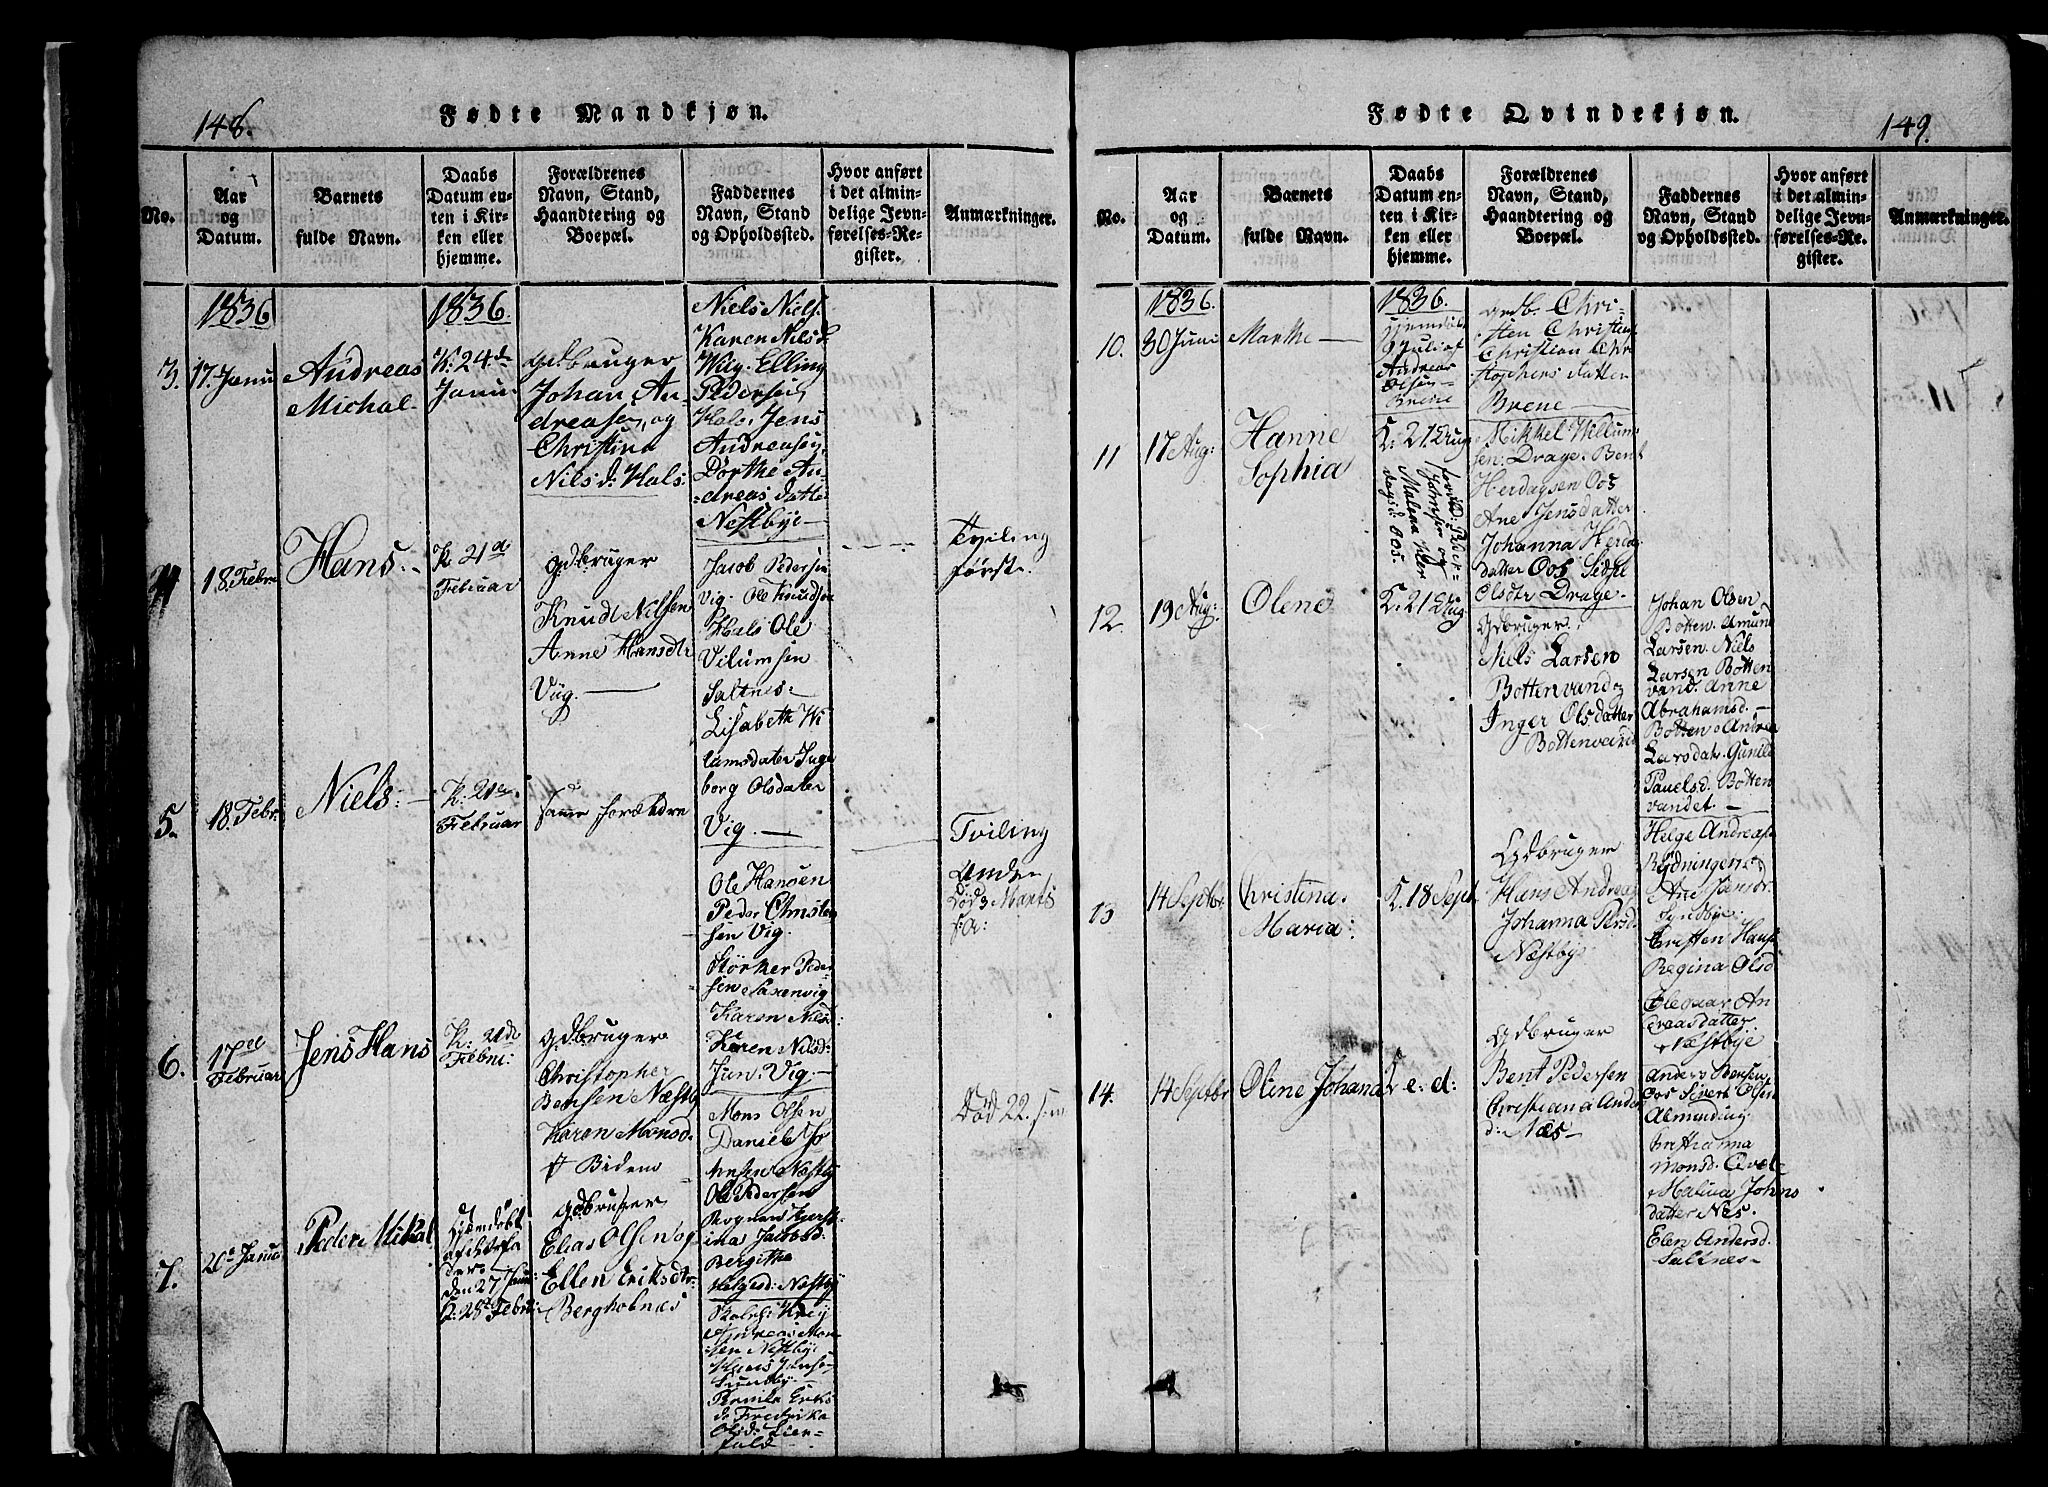 148.
Fødte Mandkjøn.
No.
Aar
og
Datum.
Barnets
fulde Navn.
Daabs
Datum en-
ten i Kir-
ken eller
hjemme.
Forældrenes
Navn, Stand,
Haandtering og
Boepæl.
Faddernes
Navn, Stand
og Opholdssted.
Hvor anført
i det almin-
delige Jevn-
førelses-Re-
gister.
Anmærkninger.
1836
1836
3.
17. Janu
Andreas
Michal-
K: 24de
Janu-
gdbruger
Johan An-
dreasen, og
Christina
Nilsd: Hals:
Niels Niels.
Karen Nilsd
Wig. Elling
Pedersen
Hals. Jens
Andreasen
Dorthe An-
dreas datte
Nestbye-
4
18. Febru
Hans.
K. 21de
Februar
gdbruger
Knudt Nilsen
Anne Hansdtr
Vüg.
Jacob Pedersen
Vig. Ole Knudsen
Hals Ole
Vilumsen
Saltnes-
Lisabeth Wi
lamsdater Inge
borg Olsdater
Vig.
Tviling
første.
5.
18. Febr.
Niels:
K: 21de
Februar
samme forældre
Ole Hansen
Peder Christen
sen Vig.
Størker Peder
sen Saxenvig
Karen Nilsd:
Karen Nilsd:
Jun: Vig:
Tviling
Anden
Død 3 Marts
s: A:
6.
17de
Februar
Jens Hans
K: 21de
Februar:
gdbruger
Christopher
Bensen Næstb
Karen Monsd.
Mons Olsen
Daniel Jo
hnsen Næstby
Ole Pedersen
Bergitha
Helgesd: Næstby
Død 22.
7.
20de Janua
Peder Mikal
Hjemdøbt
den 27 Janu:
K: 28de Febru:
gdbruger
Elias Olsen og
Ellen Eriksdtr:
Bergholmnæs
Andreas Mon
sen Nestbye
Hans Jense
Sundby
Fredrika
Olsd:
149.
Fødte Qvindekjøn.
No.
Aar
og
Datum.
Barnets
fulde Navn.
Daabs
Datum en-
ten i Kir-
ken eller
hjemme.
Forældrenes
Navn, Stand,
Haandtering og
Boepæl.
Faddernes
Navn, Stand
og Opholdssted.
Hvor anført
i det almin-
delige Jevn-
førelses-Re-
gister.
Anmærkninger.
1836.
1836.
10.
30 Juni
Marthe
Hjemdøbt
Juli af
Andreas
Olsen
Brene
grdb. Chri-
sten Christen
Christian Chr
stophers datter
Brene
11
17 Aug:
Hanne
Sophia
K: 21 Aug
foræld: Peder
Johnsen og
Malena Her
dags d: Oos.
Mikkel Willum
sen: Drage. Bent
Herdagsen Oos
Ane Jensdatter
Johanna Herda
datter Oos Sidse
Olsdtr Drage-
12.
19 Aug:
Olene
K: 21 Aug
Gdbruger
Niels Larsen
Bottenvand og
Inger Olsdatter
Bottenvand
Johan Olsen
Botten. Amund
Larsen. Niels
Larsen Botten
vand. Anne
Abrahamsd.
Botten. Andrea
Larsdatr. Gunild
Pauelsd. Botten
vandet.
13
14 Septbr
Christina
Maria:
K. 18 Sept
Gdbruger
Hans Andreas
Johanna Persd.
Næstby
Helge Andreas
Rødningen
Ane Jensdr
Christen Hans
Regina Olsd
An
dreasdatter
Næstbye
14.
14 Septbr
Oline Johana
K e: d:
Gdbruger
Bent Pedersen
Christiana Ander
d: Næs-
Anders Bensen
Oos Sivert Olsen
Almending
Christianna
Monsd.
Malina Johns
datter Nes.
Elen Andersd.
Saltnes-